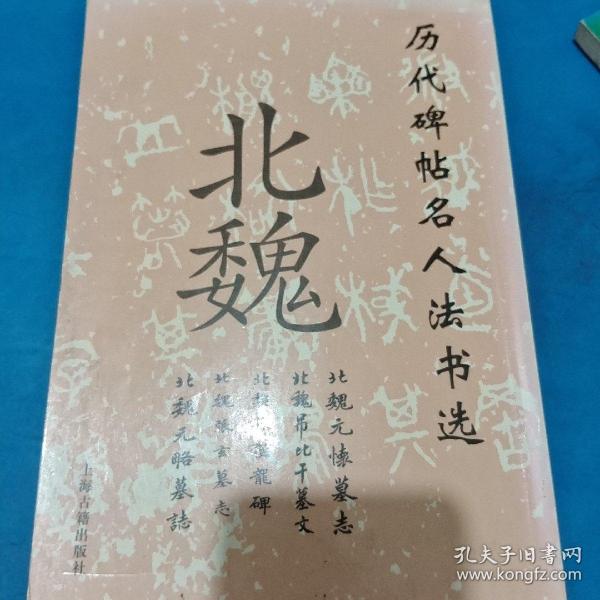 历代碑帖名人法书选
北魏
北魏元怀墓志
北魏吊比干墓文
北魏 龙碑
北魏张玄墓志
北魏元略墓誌
上海古籍出版社
孔夫子旧书网
www.kongfz.com